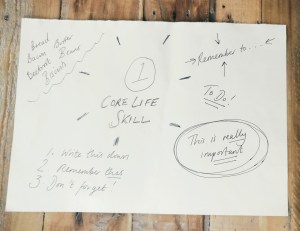 Bread
Beetroot Beans
1
CORE LIFE
SKILL
Remember to....
To Do!
This is really
important
1. Write this down
2. Remember this
3. Don't forget!